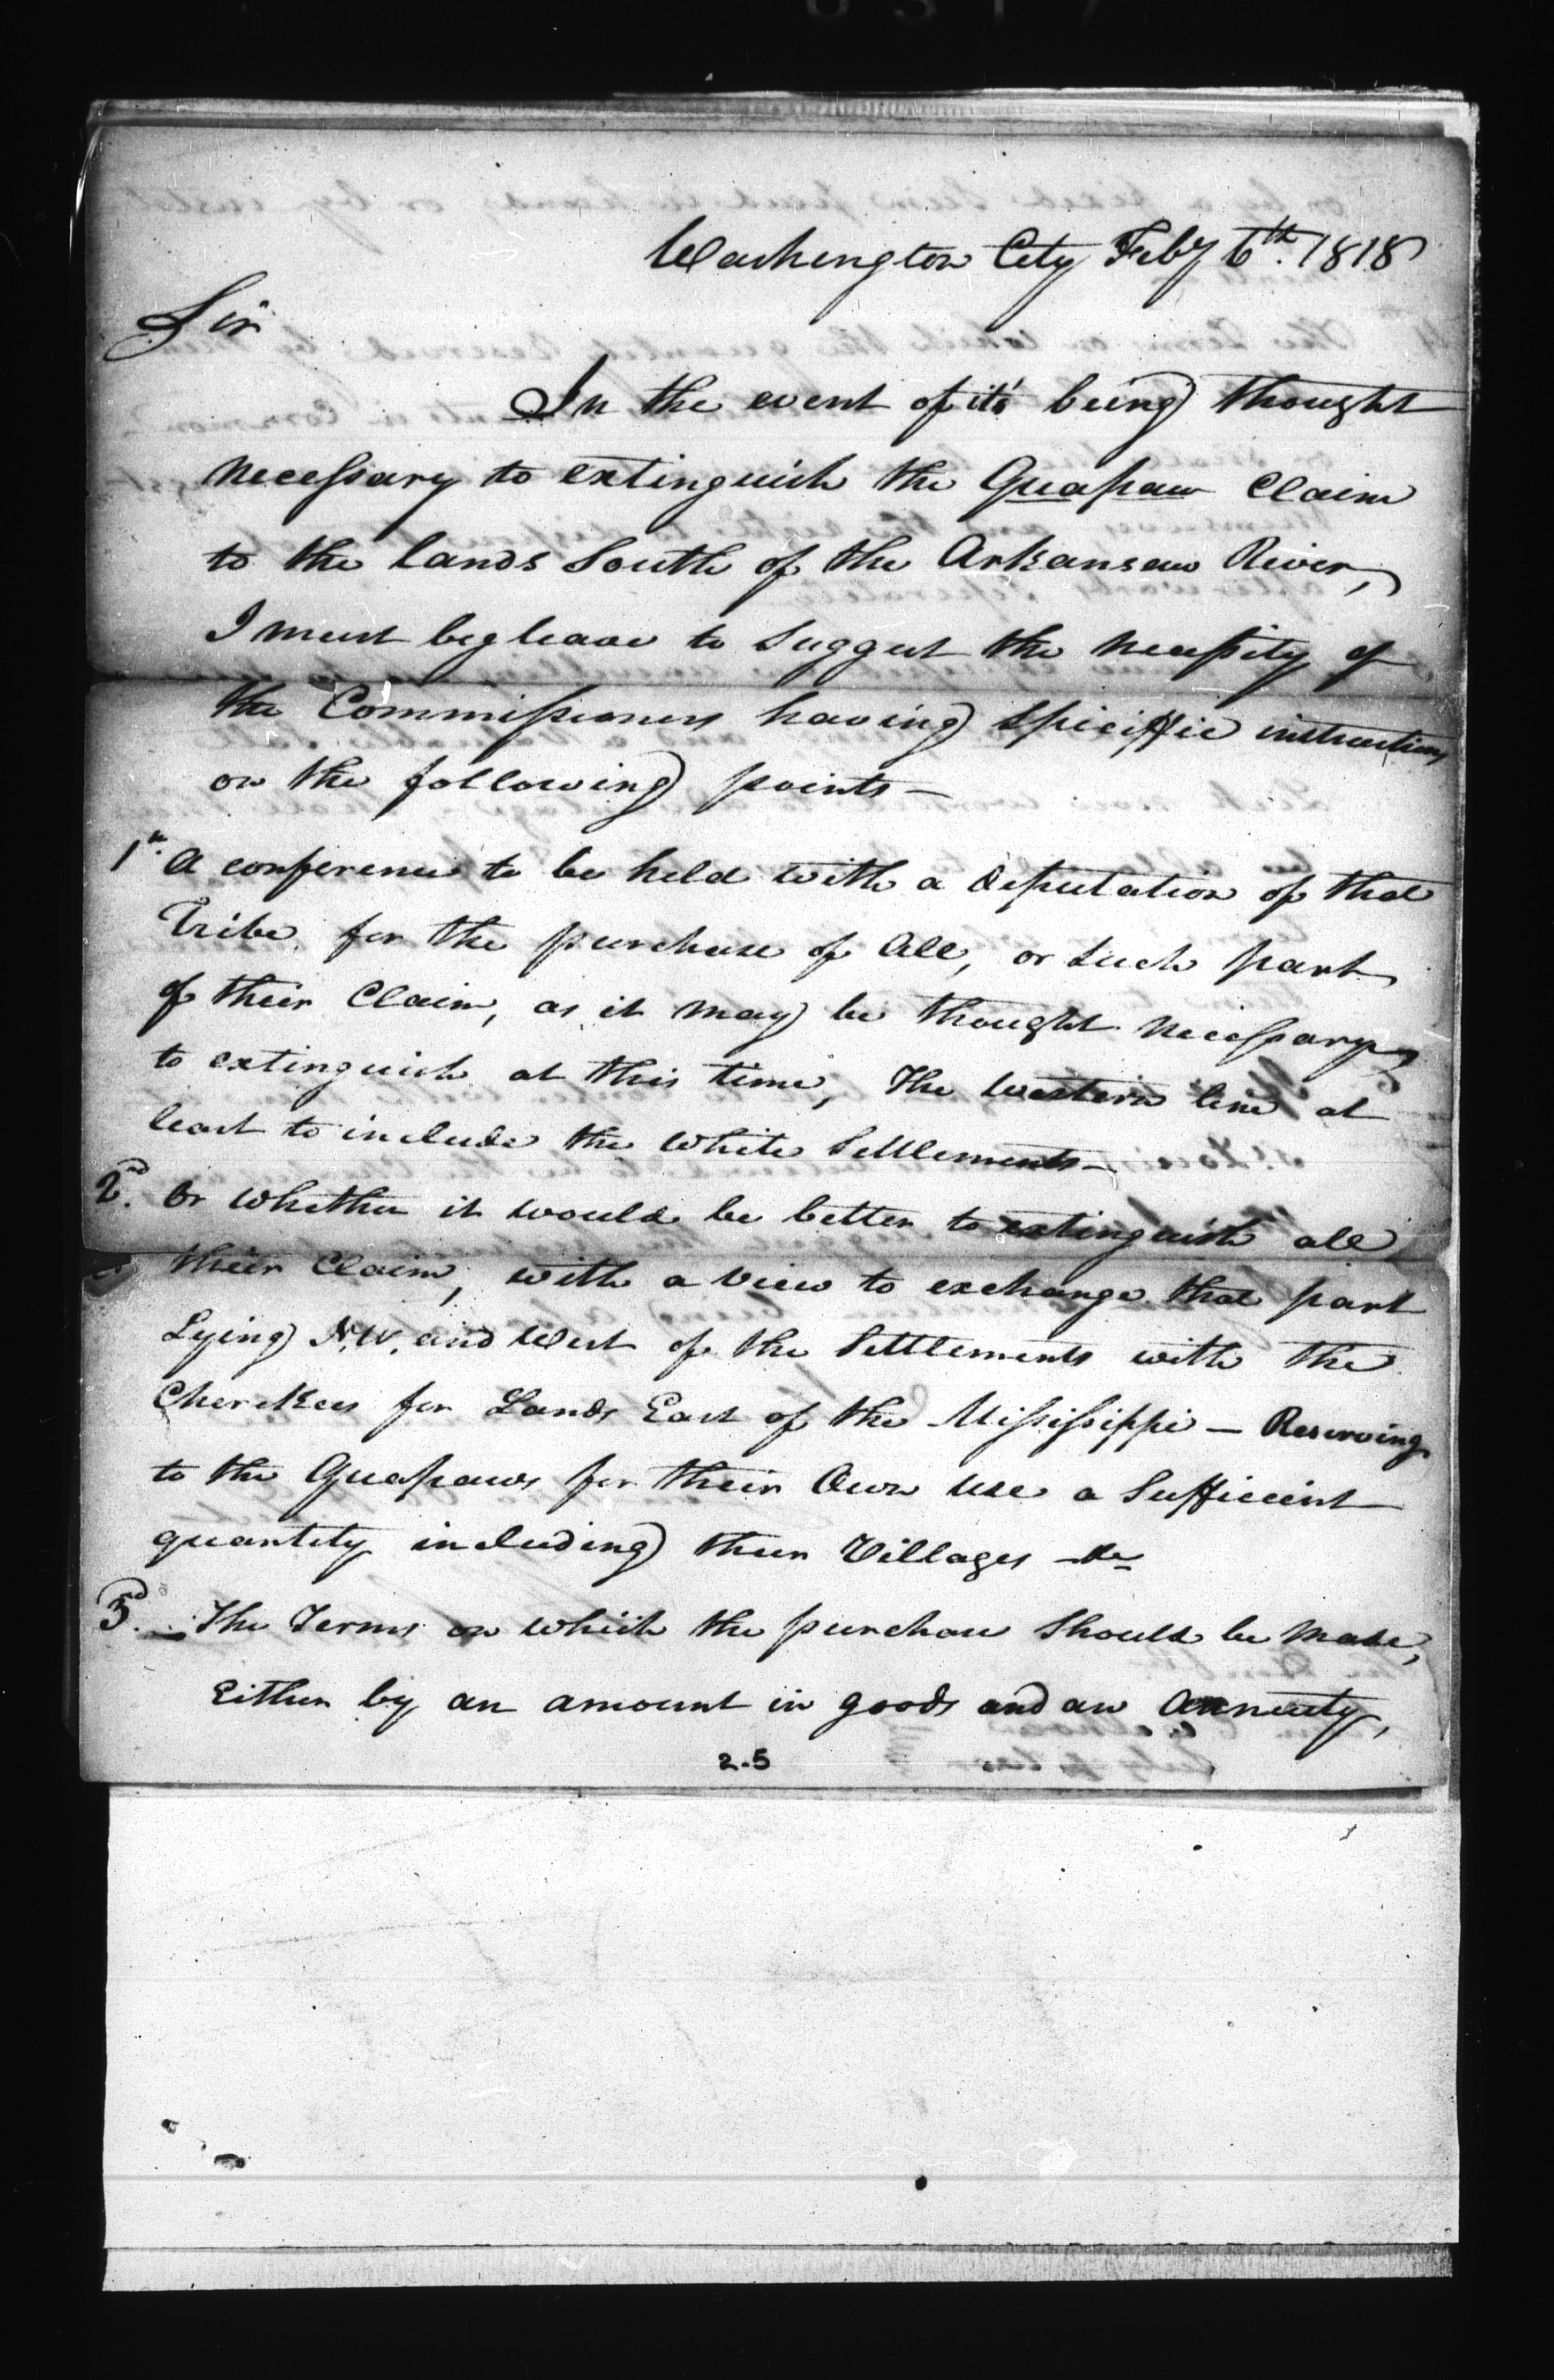 Washington City Feby 6th. 1818
Sir
In the event of it's being thought
necessary to extinguish the Quapaw Claim
to the lands South of the Arkansaw River,
I must beg leave to Suggest the necessity of
the Commissioners having Speciffic instructions
on the following points—
1st. A conference to be held with a deputation of that
Tribe for the purchase of All, or Such part
of their Claim, as it may be thought necessary
to extinguish at this time, The Western line at
least to include the White Settlements—
2d. Or whether it would be better to extinguish all
their Claim, with a view to exchange that part
Lying N.W. and West of the Settlements with the
Cherokees for Lands East of the Mississippi — Reserving
to the Quapaws for their Own use a Sufficient
quantity including their Villages &c
3d. — The Terms on which the purchase Should be made,
Either by an amount in goods and an Annuity,
2-5